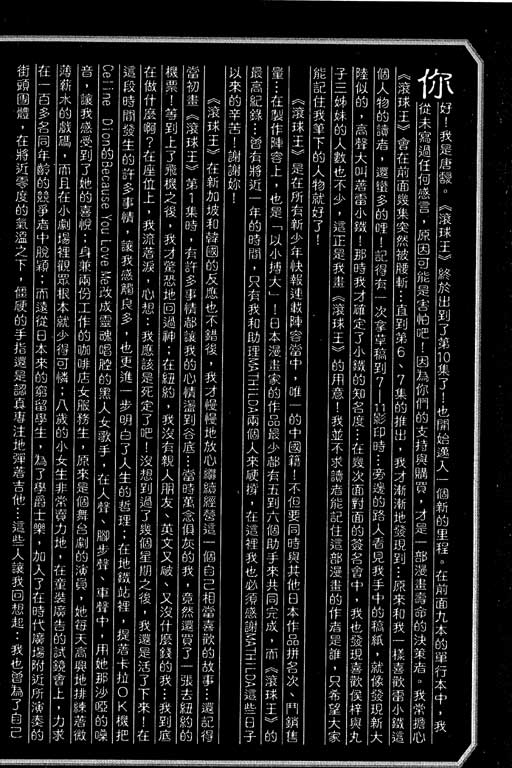 你好！我是唐馥。《滾球王》終於出到了第10集了！也開始邁入一個新的里程。在前面九本的單行本中，我
從未寫過任何感言，原因可能是害怕吧！因為你們的支持與購買，才是一部漫畫壽命的決策者。我常擔心
《滾球王》會在前面幾集突然被腰斬…直到第6、7集的推出，我才漸漸地發現到：原來和我一樣喜歡雷小鐵這
個人物的讀者，還蠻多的哩！記得有一次拿草稿到7—11影印時…旁邊的路人看見我手中的稿紙，就像發現新大
陸似的，高聲大叫著雷小鐵！那時我才確定了小鐵的知名度…在幾次面對面的簽名會中，我也發現喜歡侯梓與丸
子三姊妹的人數也不少，這正是我畫《滾球王》的用意！我並不求讀者能記住這部漫畫的作者是誰，只希望大家
能記住我筆下的人物就好了！
《滾球王》是在所有新少年快報連載陣容當中，唯一的中國籍！不但要同時與其他日本作品拼名次、鬥銷售
量…在製作陣容上，也是「以小搏大」！日本漫畫家的作品最少都有五到六個助手來共同完成，而《滾球王》的
最高紀錄…曾有將近一年的時間，只有我和助理MATHILDA兩個人來硬撐，在這裡我也必須感謝MATHILDA這些日子
以來的辛苦！謝謝妳！
初畫《滾球王》在新加坡和韓國的反應也不錯後，我才慢慢地放心繼續經營這一個自己相當喜歡的故事…還記得
當初畫《滾球王》第1集時，有許多事情都讓我的心情盪到谷底…當時萬念俱灰的我，竟然還買了一張去紐約的
機票！等到上了飛機之後，我才驚恐地回過神；在紐約，我沒有親人朋友、英文又破、又沒什麼錢的我…我到底
在做什麼啊？在座位上，我流著淚，心想：我應該是死定了吧！沒想到過了幾個星期之後，我還是活了下來！在
這段時間發生的許多事情，讓我感觸良多，也更進一步明白了人生的哲理；在地鐵站裡，提著卡拉OK機把
Celine Dion的Because You Love Me改成靈魂唱腔的黑人女歌手，在人聲、腳步聲、車聲中，用她那沙啞的嗓
音，讓我感受到了她的喜悅；身兼兩份工作的咖啡店女服務生，原來是個舞台劇的演員，她每天高興地排練著微
薄薪水的戲碼，而且在小劇場裡觀眾根本就少得可憐；八歲的小女生非常賣力地，在童裝廣告的試鏡會上，力求
在一百多名同年齡的競爭者中脫穎；而遠從日本來的窮留學生，為了學爵士樂，加入了在時代廣場附近所演奏的
街頭團體，在將近零度的氣溫之下，僵硬的手指還是認真專注地彈著吉他…這些人讓我回想起：我也曾為了自己